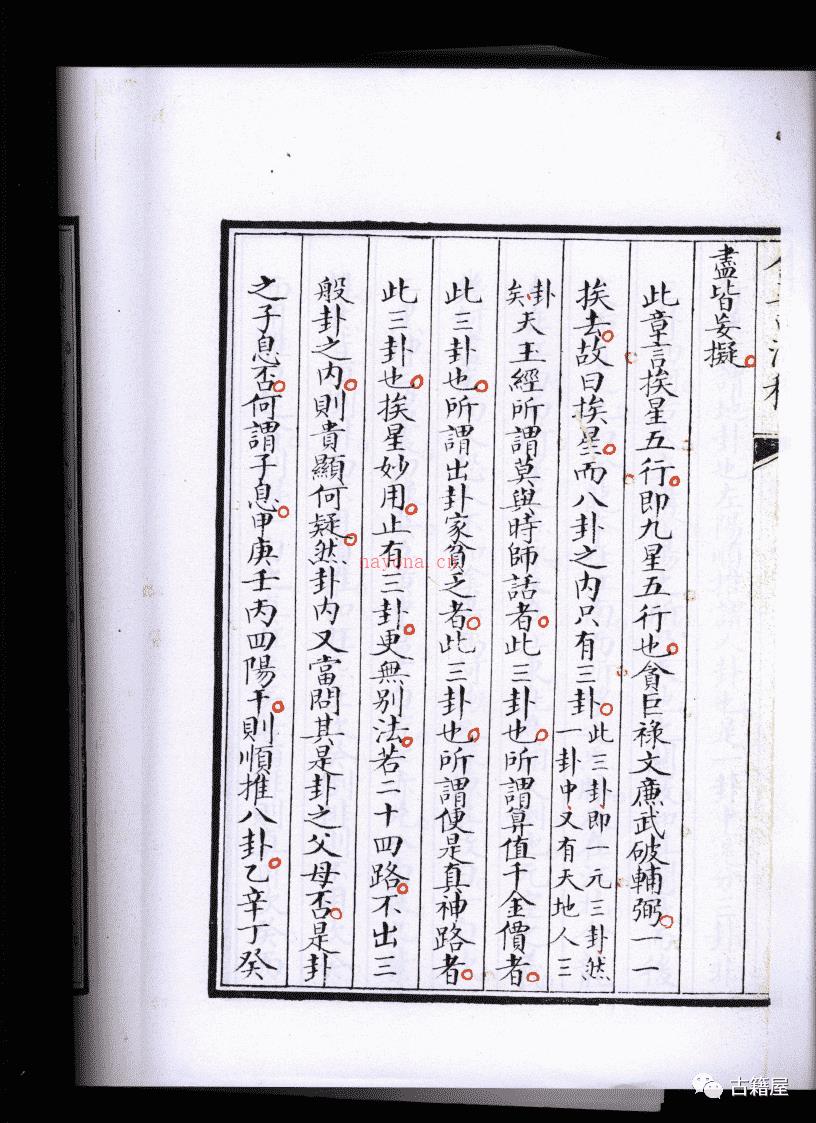 盡皆妄擬
此章言挨星五行即九星五行也貪巨祿文廉武破輔弼一一
挨去故曰挨星而八卦之內只有三卦此三卦即一元三卦然一卦中又有天地人三
卦矣天玉經所謂莫與時師話者此三卦也所謂算值千金價者
此三卦也所謂出卦家貧乏者此三卦也所謂便是真神路者
此三卦也挨星妙用止有三卦更無別法若二十四路不出三
般卦之內則貴顯何疑然卦內又當問其是卦之父母否是卦
之子息否何謂子息甲庚壬丙四陽干則順推八卦乙辛丁癸
nayona.cn
古籍屋